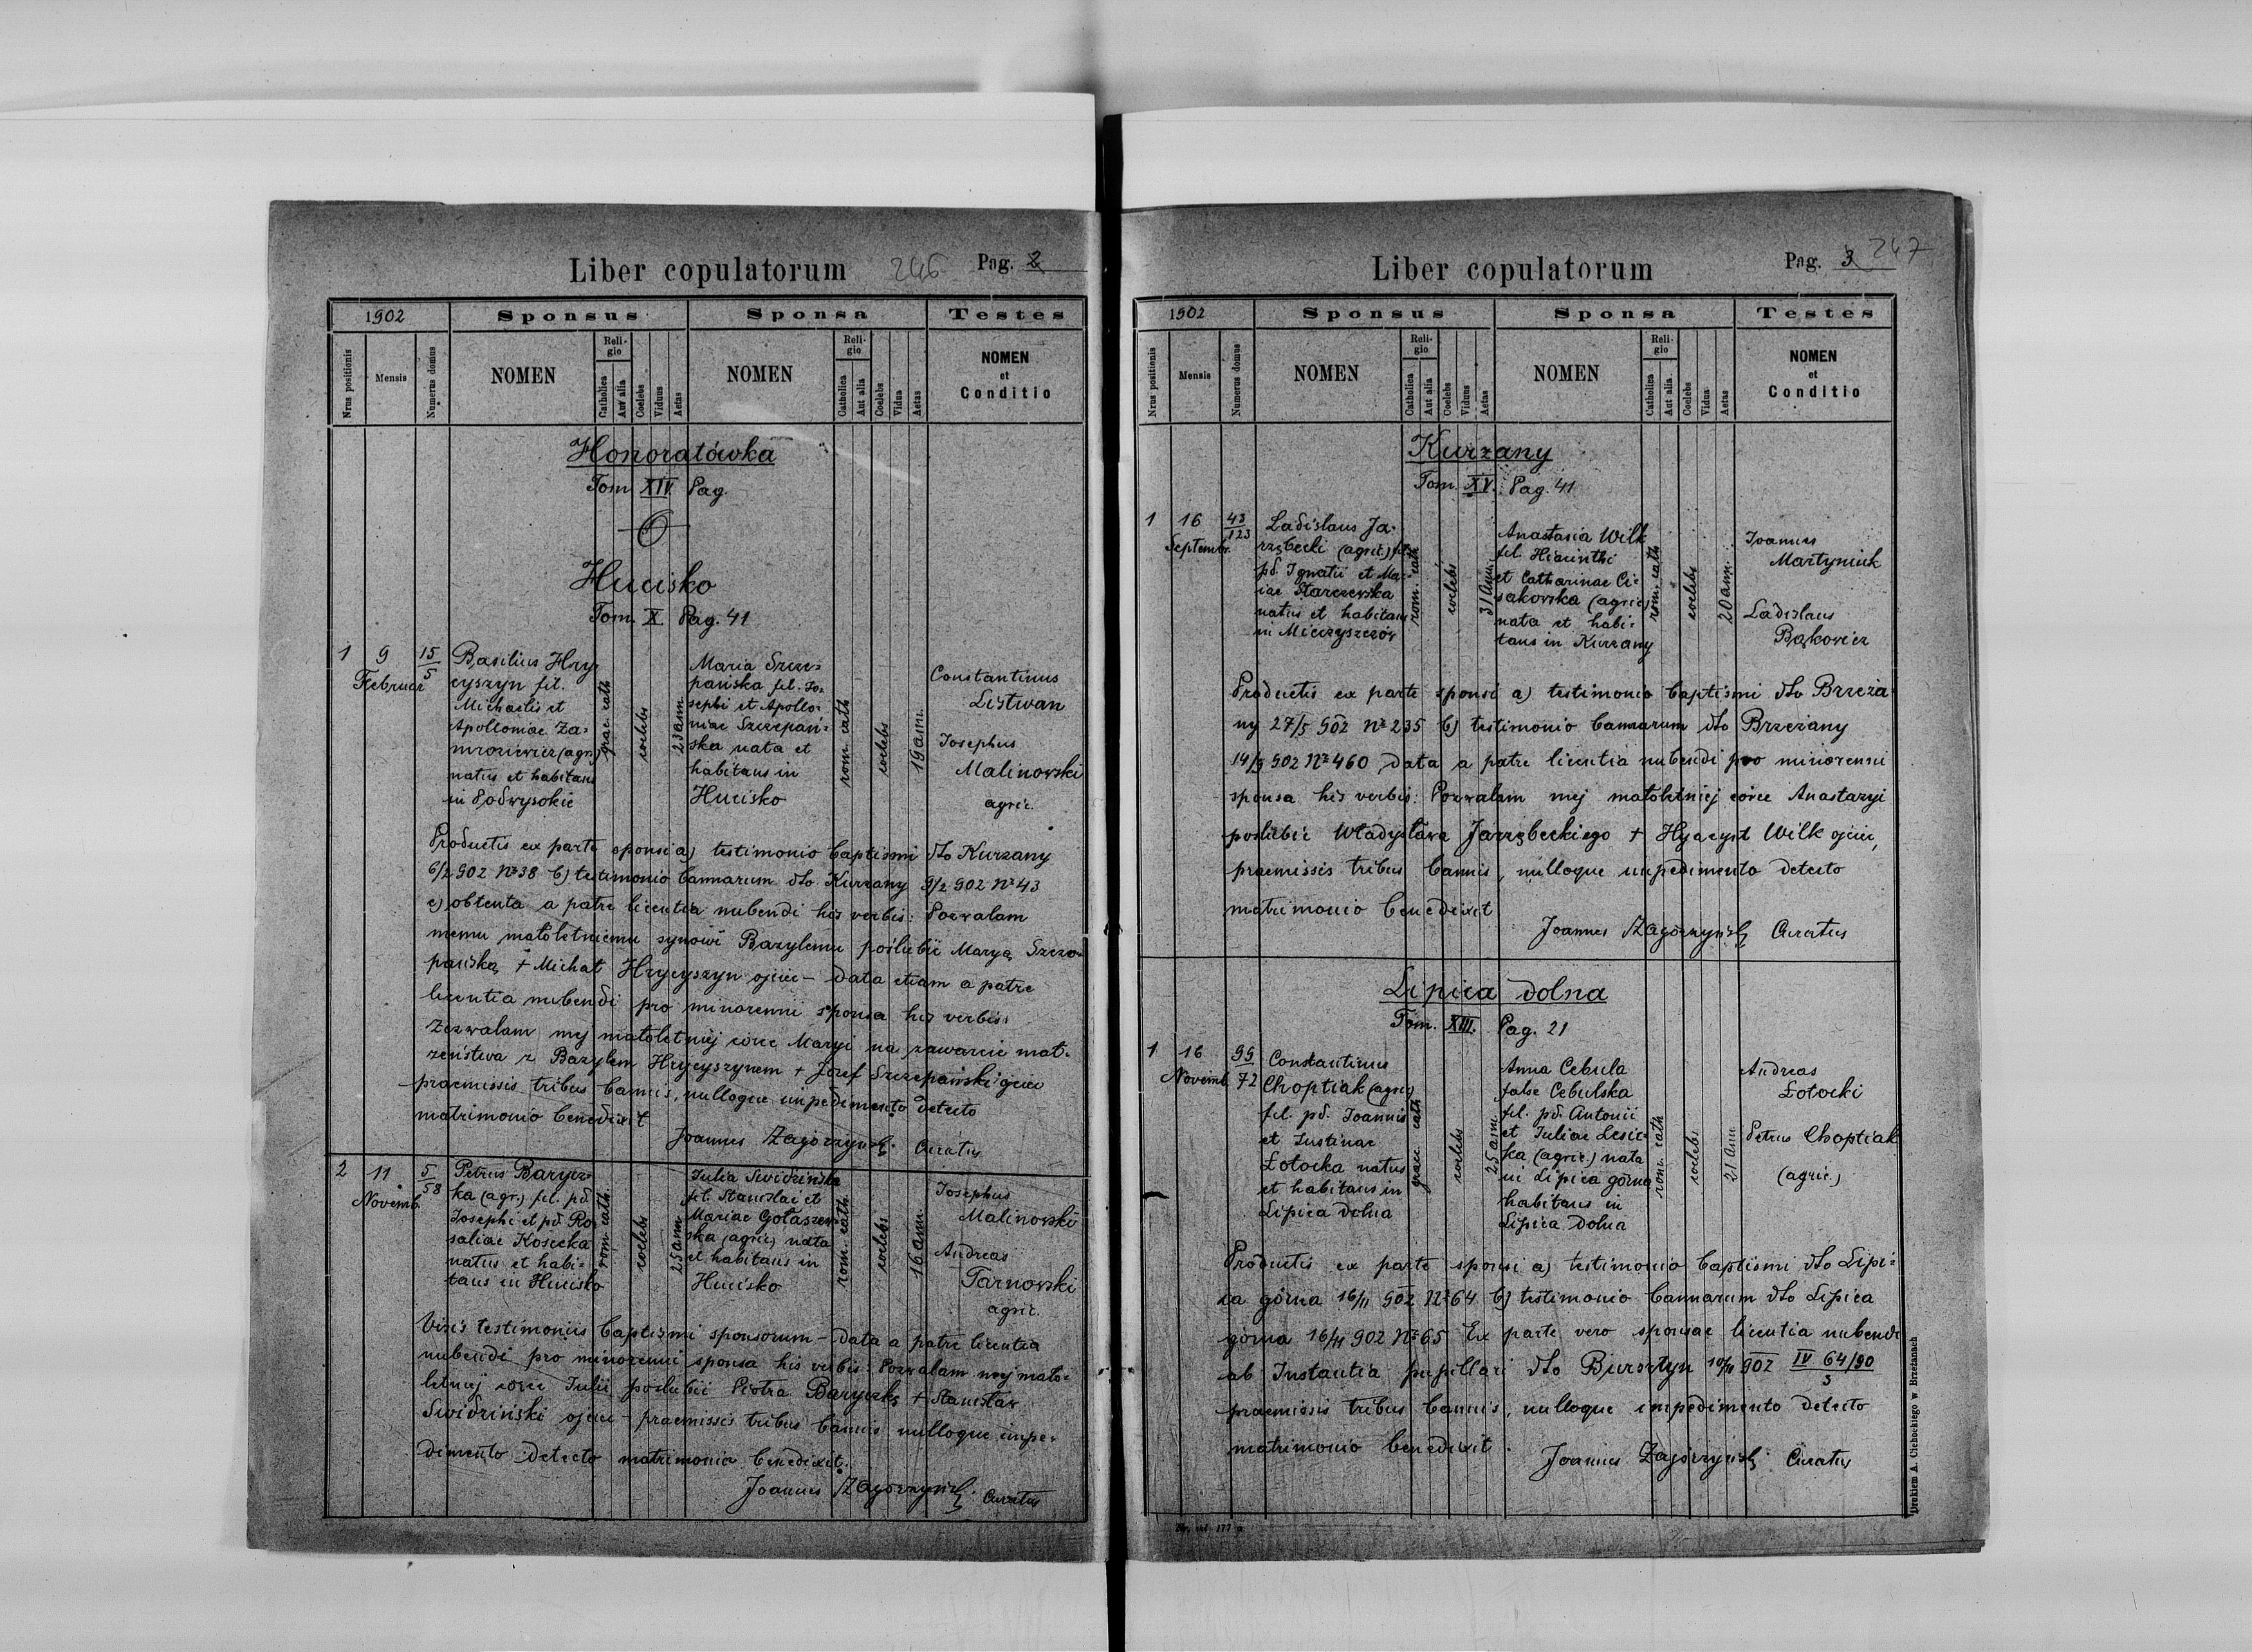 Liber copulatorum 246 Pag. 2
1902
Sponsus
Sponsa
Testes
Nrus positionis
Mensis
Numerus domus
NOMEN
Religio
Catholica
Aut alia
Coelebs
Viduus
Aetas
NOMEN
Religio
Catholica
Aut alia
Coelebs
Vidua
Aetas
NOMEN
et
Conditio
Honoratówka
Tom XIV Pag.
Hucisko
Tom. X Pag. 41
1
9
Februar
15/5
Basilius Hry-
cyszyn fil.
Michaelis et
Apolloniae Za-
mroziewicz (agr.)
natus et habitans
in Podwysokie
graec. cath
coelebs
23 ann.
Maria Szcze-
pańska fil. Jo-
sephi et Apollo-
niae Szczepań-
ska nata et
habitans in
Hucisko
rom. cath
coelebs
19 ann.
Constantinus
Listwan
Josephus
Malinowski
agric.
Productis ex parte sponsi a) testimonio baptismi dto Kurzany
6/2 902 No 38 b) testimonio bannorum dto Kurzany 9/2 902 No 43
c) obtenta a patre licentia nubendi his verbis: Pozwalam
memu małoletniemu synowi Bazylemu poślubić Maryą Szcze-
pańską + Michał Hrycyszyn ojciec - data etiam a patre
licentia nubendi pro minorenni sponsa his verbis:
Zezwalam mej małoletniej córce Maryi na zawarcie mał-
żeństwa z Bazylem Hrycyszynem + Józef Szczepański ojciec
praemissis tribus bannis, nulloque impedimento detecto
matrimonio benedixit
Joannes Zagórzyński Curatus
2
11
Novemb.
5/58
Petrus Barycz-
ka (agr.) fil. pd.
Josephi et pd. Ro-
saliae Kosecka
natus et habi-
tans in Hucisko
rom. cath.
coelebs
25 ann
Julia Swidzińska
fil. Stanislai et
Mariae Gołaszew-
ska (agric) nata
et habitans in
Hucisko
rom. cath.
coelebs
16 ann.
Josephus
Malinowski
Andreas
Tarnowski
agric.
Visis testimoniis baptismi sponsorum - data a patre licentia
nubendi pro minorenni sponsa his verbis: Pozwalam mej mało-
letniej córce Julii poślubić Piotra Baryczkę + Stanisław
Swidziński ojciec - praemissis tribus bannis nulloque impe-
dimento detecto matrimonio benedixit.
Joannes Zagórzyński Curatus
Liber copulatorum Pag. 3 247
1902
Sponsus
Sponsa
Testes
Nrus positionis
Mensis
Numerus domus
NOMEN
Religio
Catholica
Aut alia
Coelebs
Viduus
Aetas
NOMEN
Religio
Catholica
Aut alia
Coelebs
Vidua
Aetas
NOMEN
et
Conditio
Kurzany
Tom. XV. Pag. 41
1
16
Septembr.
43/123
Ladislaus Ja-
rzębecki (agric.) fil.
pd. Ignatii et Ma-
riae Starczewska
natus et habitans
in Mieczyszczów
rom. cath
coelebs
31 ann.
Anastasia Wilk
fil. Hiacinthi
et Catharinae Ci-
sakowska (agric)
nata et habi-
tans in Kurzany
rom. cath
coelebs
20 ann.
Joannes
Martyniuk
Ladislaus
Bąkowicz
Productis ex parte sponsi a) testimonio baptismi dto Brzeża-
ny 27/5 902 No 235 b) testimonio bannorum dto Brzeżany
14/9 902 No 460 data a patre licentia nubendi pro minorenni
sponsa his verbis: Pozwalam mej małoletniej córce Anastazyi
poślubić Władysława Jarzębeckiego + Hyacynt Wilk ojciec,
praemissis tribus bannis, nulloque impedimento detecto
matrimonio benedixit
Joannes Zagórzyński Curatus
Lipica dolna
Tom. XIII. Pag. 21
1
16
Novemb.
99/72
Constantinus
Choptiak (agric)
fil. pd. Joannis
et Justinae
Łotocka natus
et habitans in
Lipica dolna
graec cath
coelebs
25 ann.
Anna Cebula
false Cebulska
fil. pd. Antonii
et Juliae Lesic-
ka (agric.) nata
in Lipica górna
habitans in
Lipica dolna
rom. cath
coelebs
21 ann
Andreas
Łotocki
Petrus Choptiak
(agric.)
Productis ex parte sponsi a) testimonio baptismi dto Lipi-
ca górna 16/11 902 No 64 b) testimonio bannorum dto Lipica
górna 16/11 902 No 65 Ex parte vero sponsae licentia nubendi
ab Instantia pupillari dto Bursztyn 10/11 902 IV 64/90/3
praemissis tribus bannis, nulloque impedimento detecto
matrimonio benedixit.
Joannes Zagórzyński Curatus
Drukiem A. Cichockiego w Brzeżanach